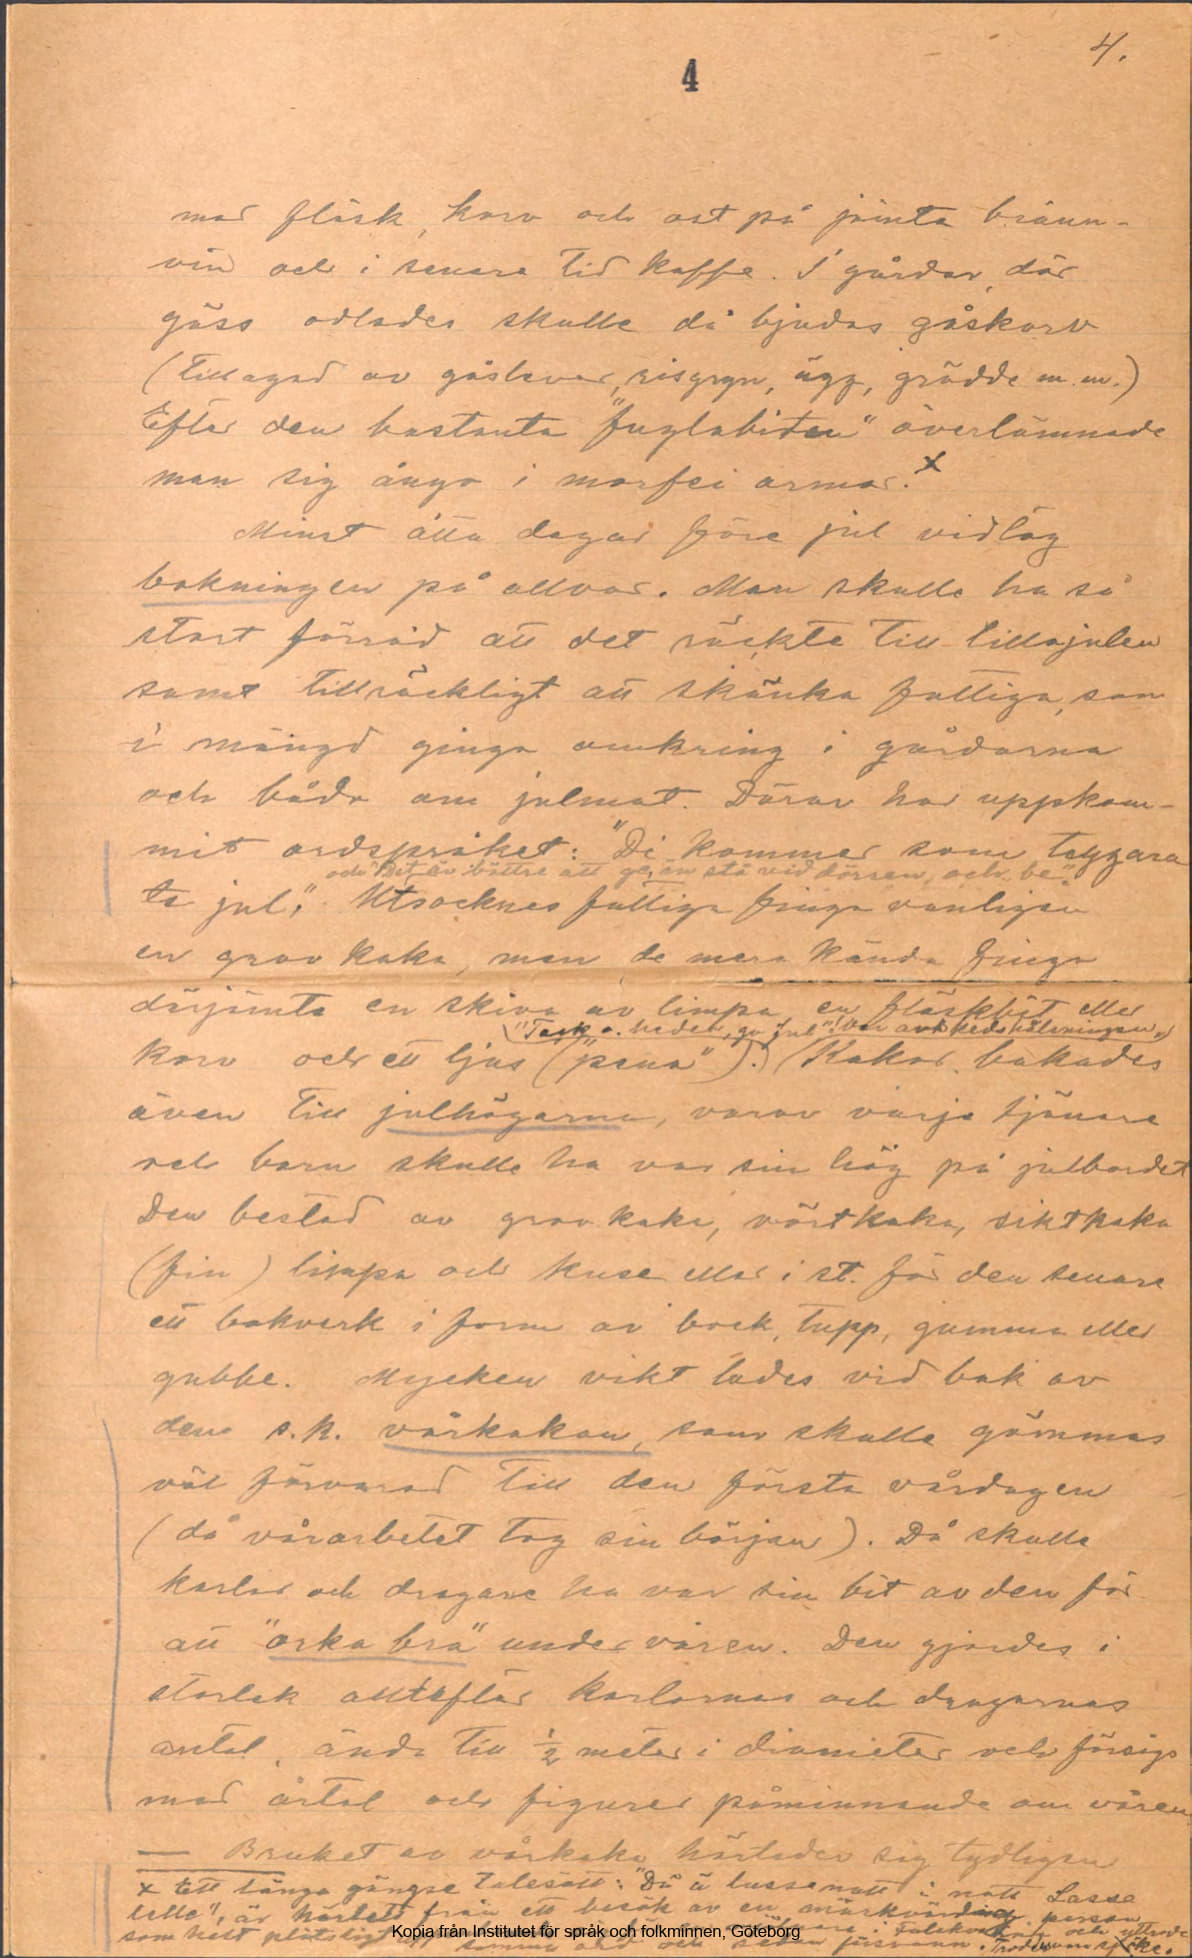 4.
4
med fläsk, korv och ost på jämte bränn-
vin och i senare tid kaffe. I gårdar, där
gäss odlades skulle då bjudas gåskorv
(tillagad av gåslever, risgryn, ägg, grädde m.m.)
Efter den bastanta "fuglabiten" överlämnade
man sig ånyo i morfei armar. x
Minst åtta dagar före jul vidtog
bakningen på allvar. Man skulle ha så
stort förråd att det räckte till lillajulen
samt tillräckligt att skänka fattiga, som
i mängd gingo omkring i gårdarna
och bådo om julmat. Därav har uppkom-
mit ordspråket: "Di kommer som teggara
och "Det är bättre att ge, än stå vid dörren och be".
te jul". Utsocknes fattiga fingo vanligen
en grov kaka, men de mera kända fingo
därjämte en skiva av limpa, en fläskbit eller
("Tack o. heder, go jul"! var avskedshälsningen.)
korv och ett ljus ("pena"). Kakor bakades
även till julhögarna, varav varje tjänare
och barn skulle ha var sin hög på julbordet
Den bestod av grov kaka, vörtkaka, siktkaka
(fin) limpa och kuse eller i st. för den senare
ett bakverk i form av bock, tupp, gumma eller
gubbe. Mycken vikt lades vid bak av
den s.k. vårkakan, som skulle gömmas
väl förvarad till den första vårdagen
(då vårarbetet tog sin början). Då skulle
karlar och dragare ha var sin bit av den för
att "orka bra" under våren. Den gjordes i
storlek alltefter karlarnas och dragarnas
antal, ända till ½ meter i diameter och försågs
med årtal och figurer påminnande om våren
— Bruket av vårkaka härleder sig tydligen
x Ett länge gängse talesätt: "Då ä lussenatt i natt Lasse
lelle", är härlett från ett besök av en märkvärdig person
som helt plötsligt samma ord och sedan försvann.
Kopia från Institutet för språk och folkminnen, Göteborg